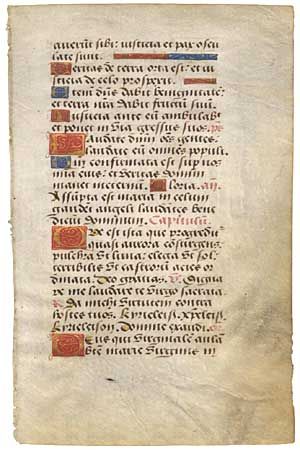 uerunt sibi: iusticia et pax oscu
late sunt.
Veritas de terra orta est: et iu
sticia de celo prosperit.
Etem dñs dabit benignitate:
et terra nra dabit fructū suū.
Iusticia ante eū ambulab
et ponet in via gressus suos. ps
Laudate dnm oēs gentes:
laudate eū omnes populi.
Qm confirmata est sup nos
mia eius: et veritas domini
manet ineternū. Gloria. añ
Assūpta est maria in celum
gaudēt angeli laudātes bene
dicūt dominum. Capitulū.
Que est ista que progredit
quasi aurora cōsurgens
pulchra vt luna: electa vt sol:
terribilis vt castrorū acies or
dinata. Deo gratias. Digna
re me laudare te virgo sacrata.
Da michi virtutem contra
hostes tuos. Kyrieleisō. xpeleisō.
Kyrieleison. Domine exaudi.
Deus qui virginalē aulā
bte marie virginis in